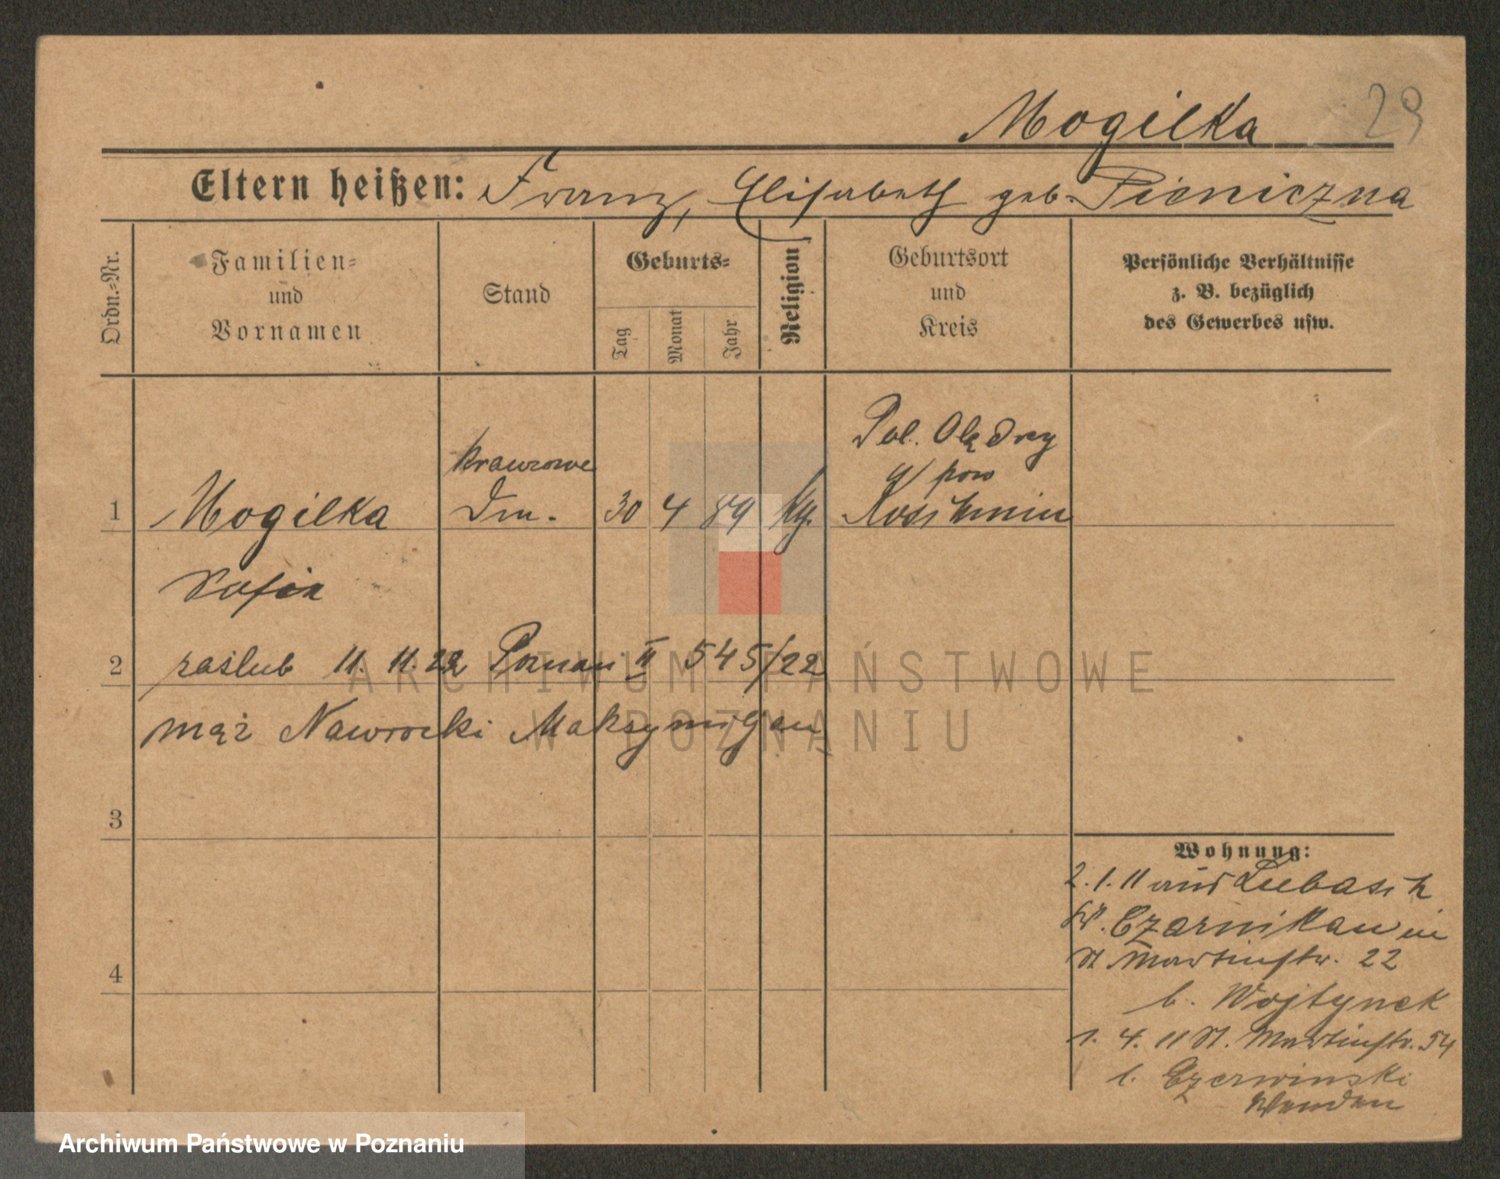 Mogilka 29
Eltern heißen: Franz, Elisabeth geb. Pieniczna
Ordn.-Nr.
Familien-
und
Vornamen
Stand
Geburts-
Tag
Monat
Jahr
Religion
Geburtsort
und
Kreis
Persönliche Verhältnisse
z. B. bezüglich
des Gewerbes usw.
1
Mogilka
Sofia
krawcowa
30 4 89
Pol. Olędry
pow
Koschmin
2
zaślub 11. 11. 22 Poznań II 545/22
mąż Nawrocki Maksymiljan
3
4
Wohnung:
2. 1. 11 aus Lubasch
Kr. Czarnikau in
St Martinstr. 22
b. Wojtynek
1. 4. 11 St. Martinstr. 54
b. Czerwinski
ARCHIWUM PAŃSTWOWE
W POZNANIU
Archiwum Państwowe w Poznaniu